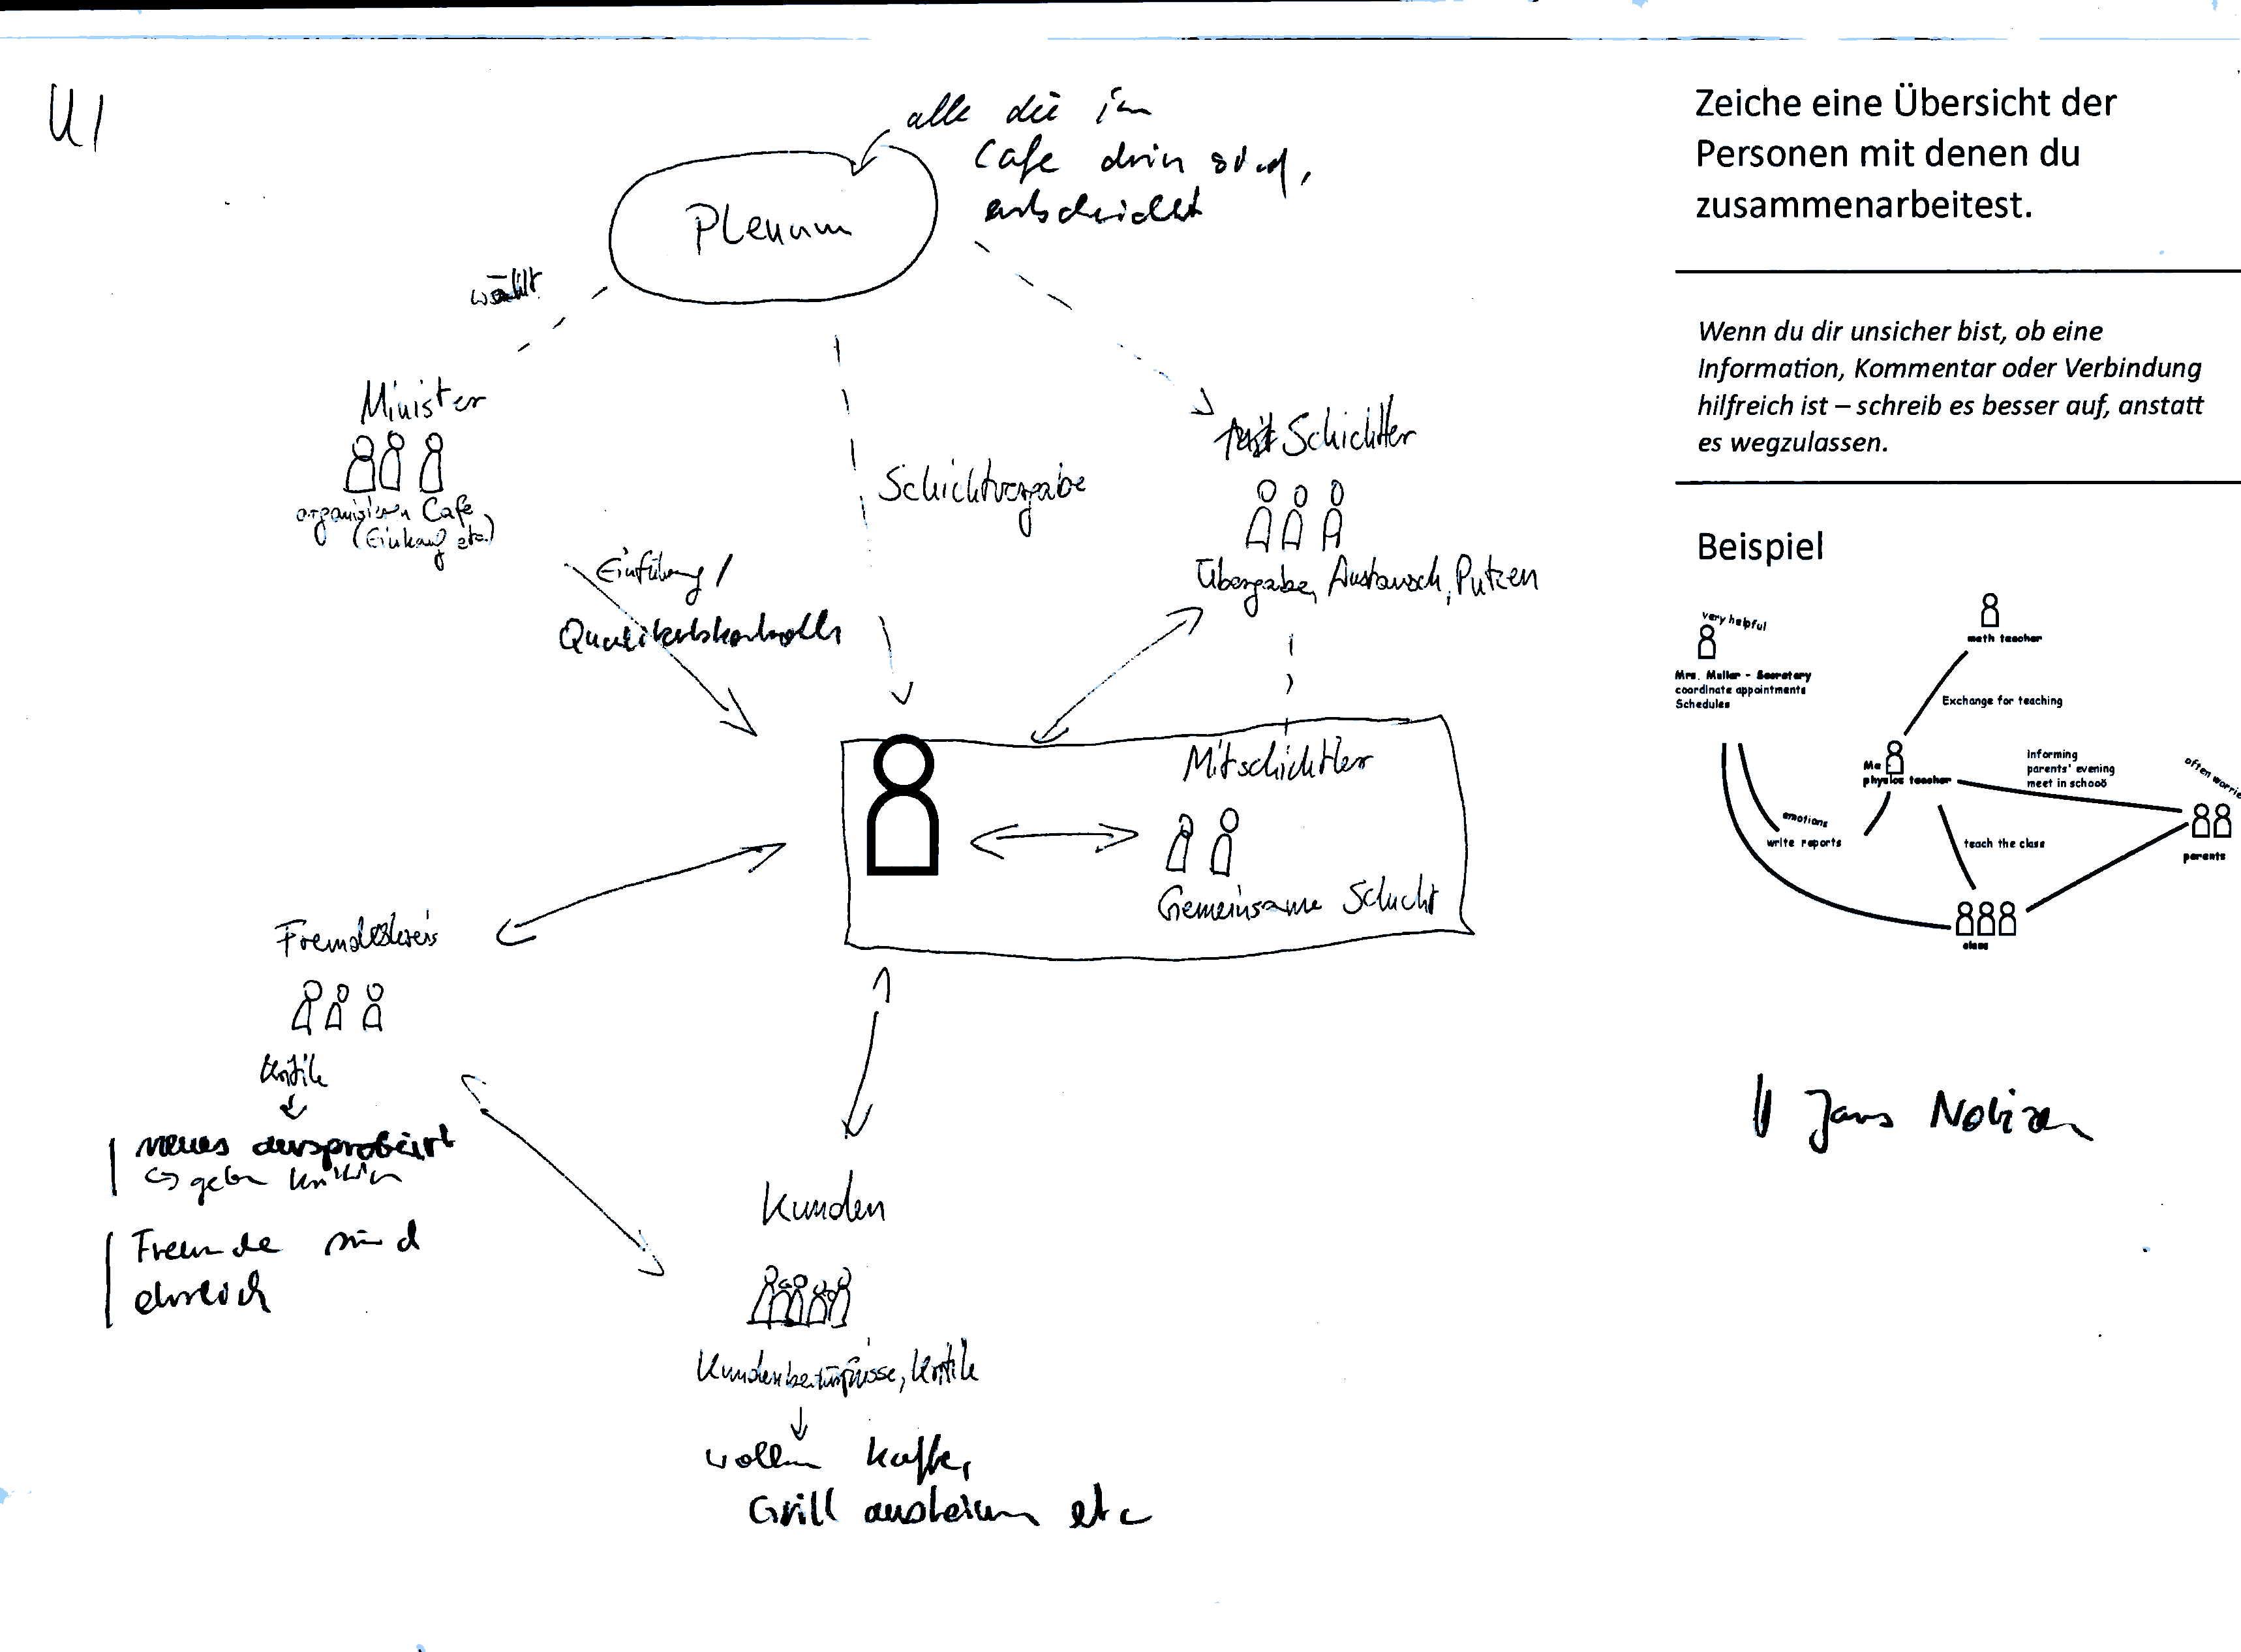 U1
alle die im
Cafe drin sind,
entscheidet
Plenum
wählt
Minister
organisieren Cafe
(Einkauf etc.)
Schichtvergabe
Schichtler
Übergabe, Austausch, Putzen
Einführung /
Qualitätskontrolle
Mitschichtler
Gemeinsame Schicht
Freundeskreis
Kritik
neues ausprobiert
geben Kritik
Freunde sind
ehrlich
Kunden
Kundenbedürfnisse, Kritik
wollen Kaffe,
Grill ausleihen etc
Zeiche eine Übersicht der
Personen mit denen du
zusammenarbeitest.
Wenn du dir unsicher bist, ob eine
Information, Kommentar oder Verbindung
hilfreich ist – schreib es besser auf, anstatt
es wegzulassen.
Beispiel
very helpful
Mrs. Muller - Secretary
coordinate appointments
Schedules
math teacher
Exchange for teaching
Me
physics teacher
Informing
parents' evening
meet in schooö
often worrie
parents
emotions
write reports
teach the class
class